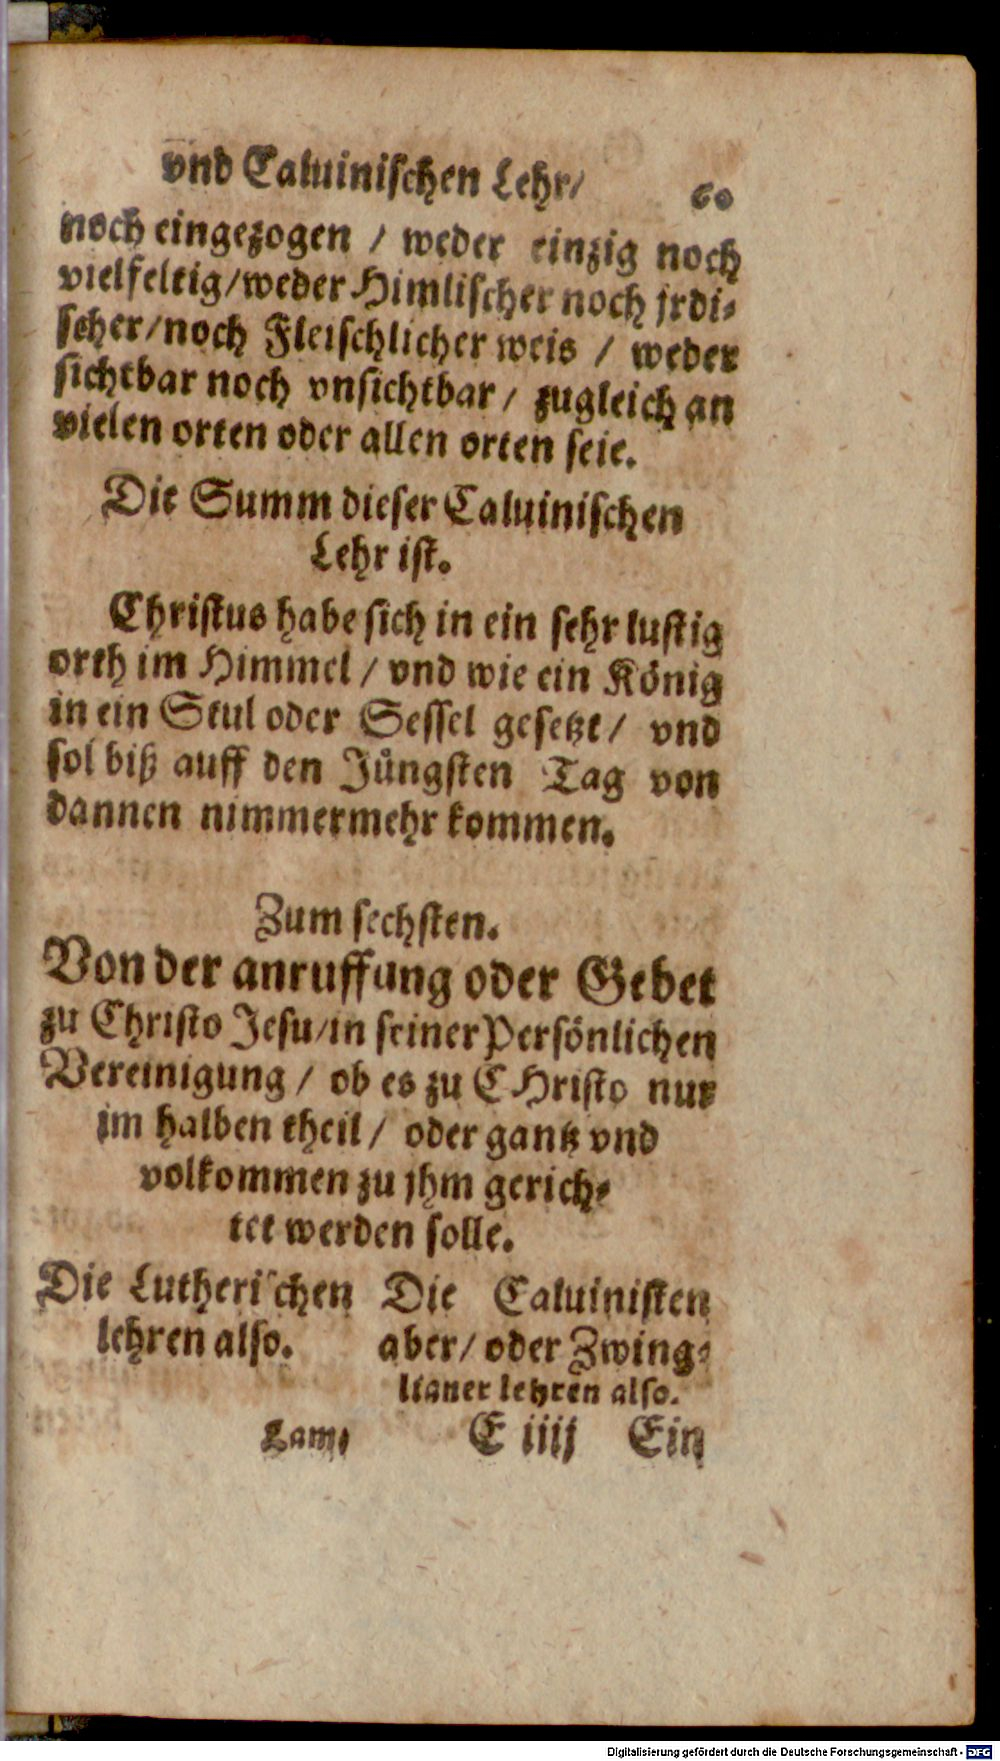 vnd Caluinischen Lehr/ 60
noch eingezogen / weder einzig noch
vielfeltig/weder Himlischer noch jrdi-
scher/noch Fleischlicher weis / weder
sichtbar noch vnsichtbar / zugleich an
vielen orten oder allen orten seie.
Die Summ dieser Caluinischen
Lehr ist.
Christus habe sich in ein sehr lustig
orth im Himmel / vnd wie ein König
in ein Stul oder Sessel gesetzt / vnd
sol biß auff den Jüngsten Tag von
dannen nimmermehr kommen.
Zum sechsten.
Von der anruffung oder Gebet
zu Christo Jesu/in seiner Persönlichen
Vereinigung / ob es zu CHristo nur
im halben theil / oder gantz vnd
volkommen zu jhm gerich-
tet werden solle.
Die Lutherischen
lehren also.
Lam-
Die Caluinisten
aber/ oder Zwing-
lianer lehren also.
E iiij Ein
Digitalisierung gefördert durch die Deutsche Forschungsgemeinschaft - DFG